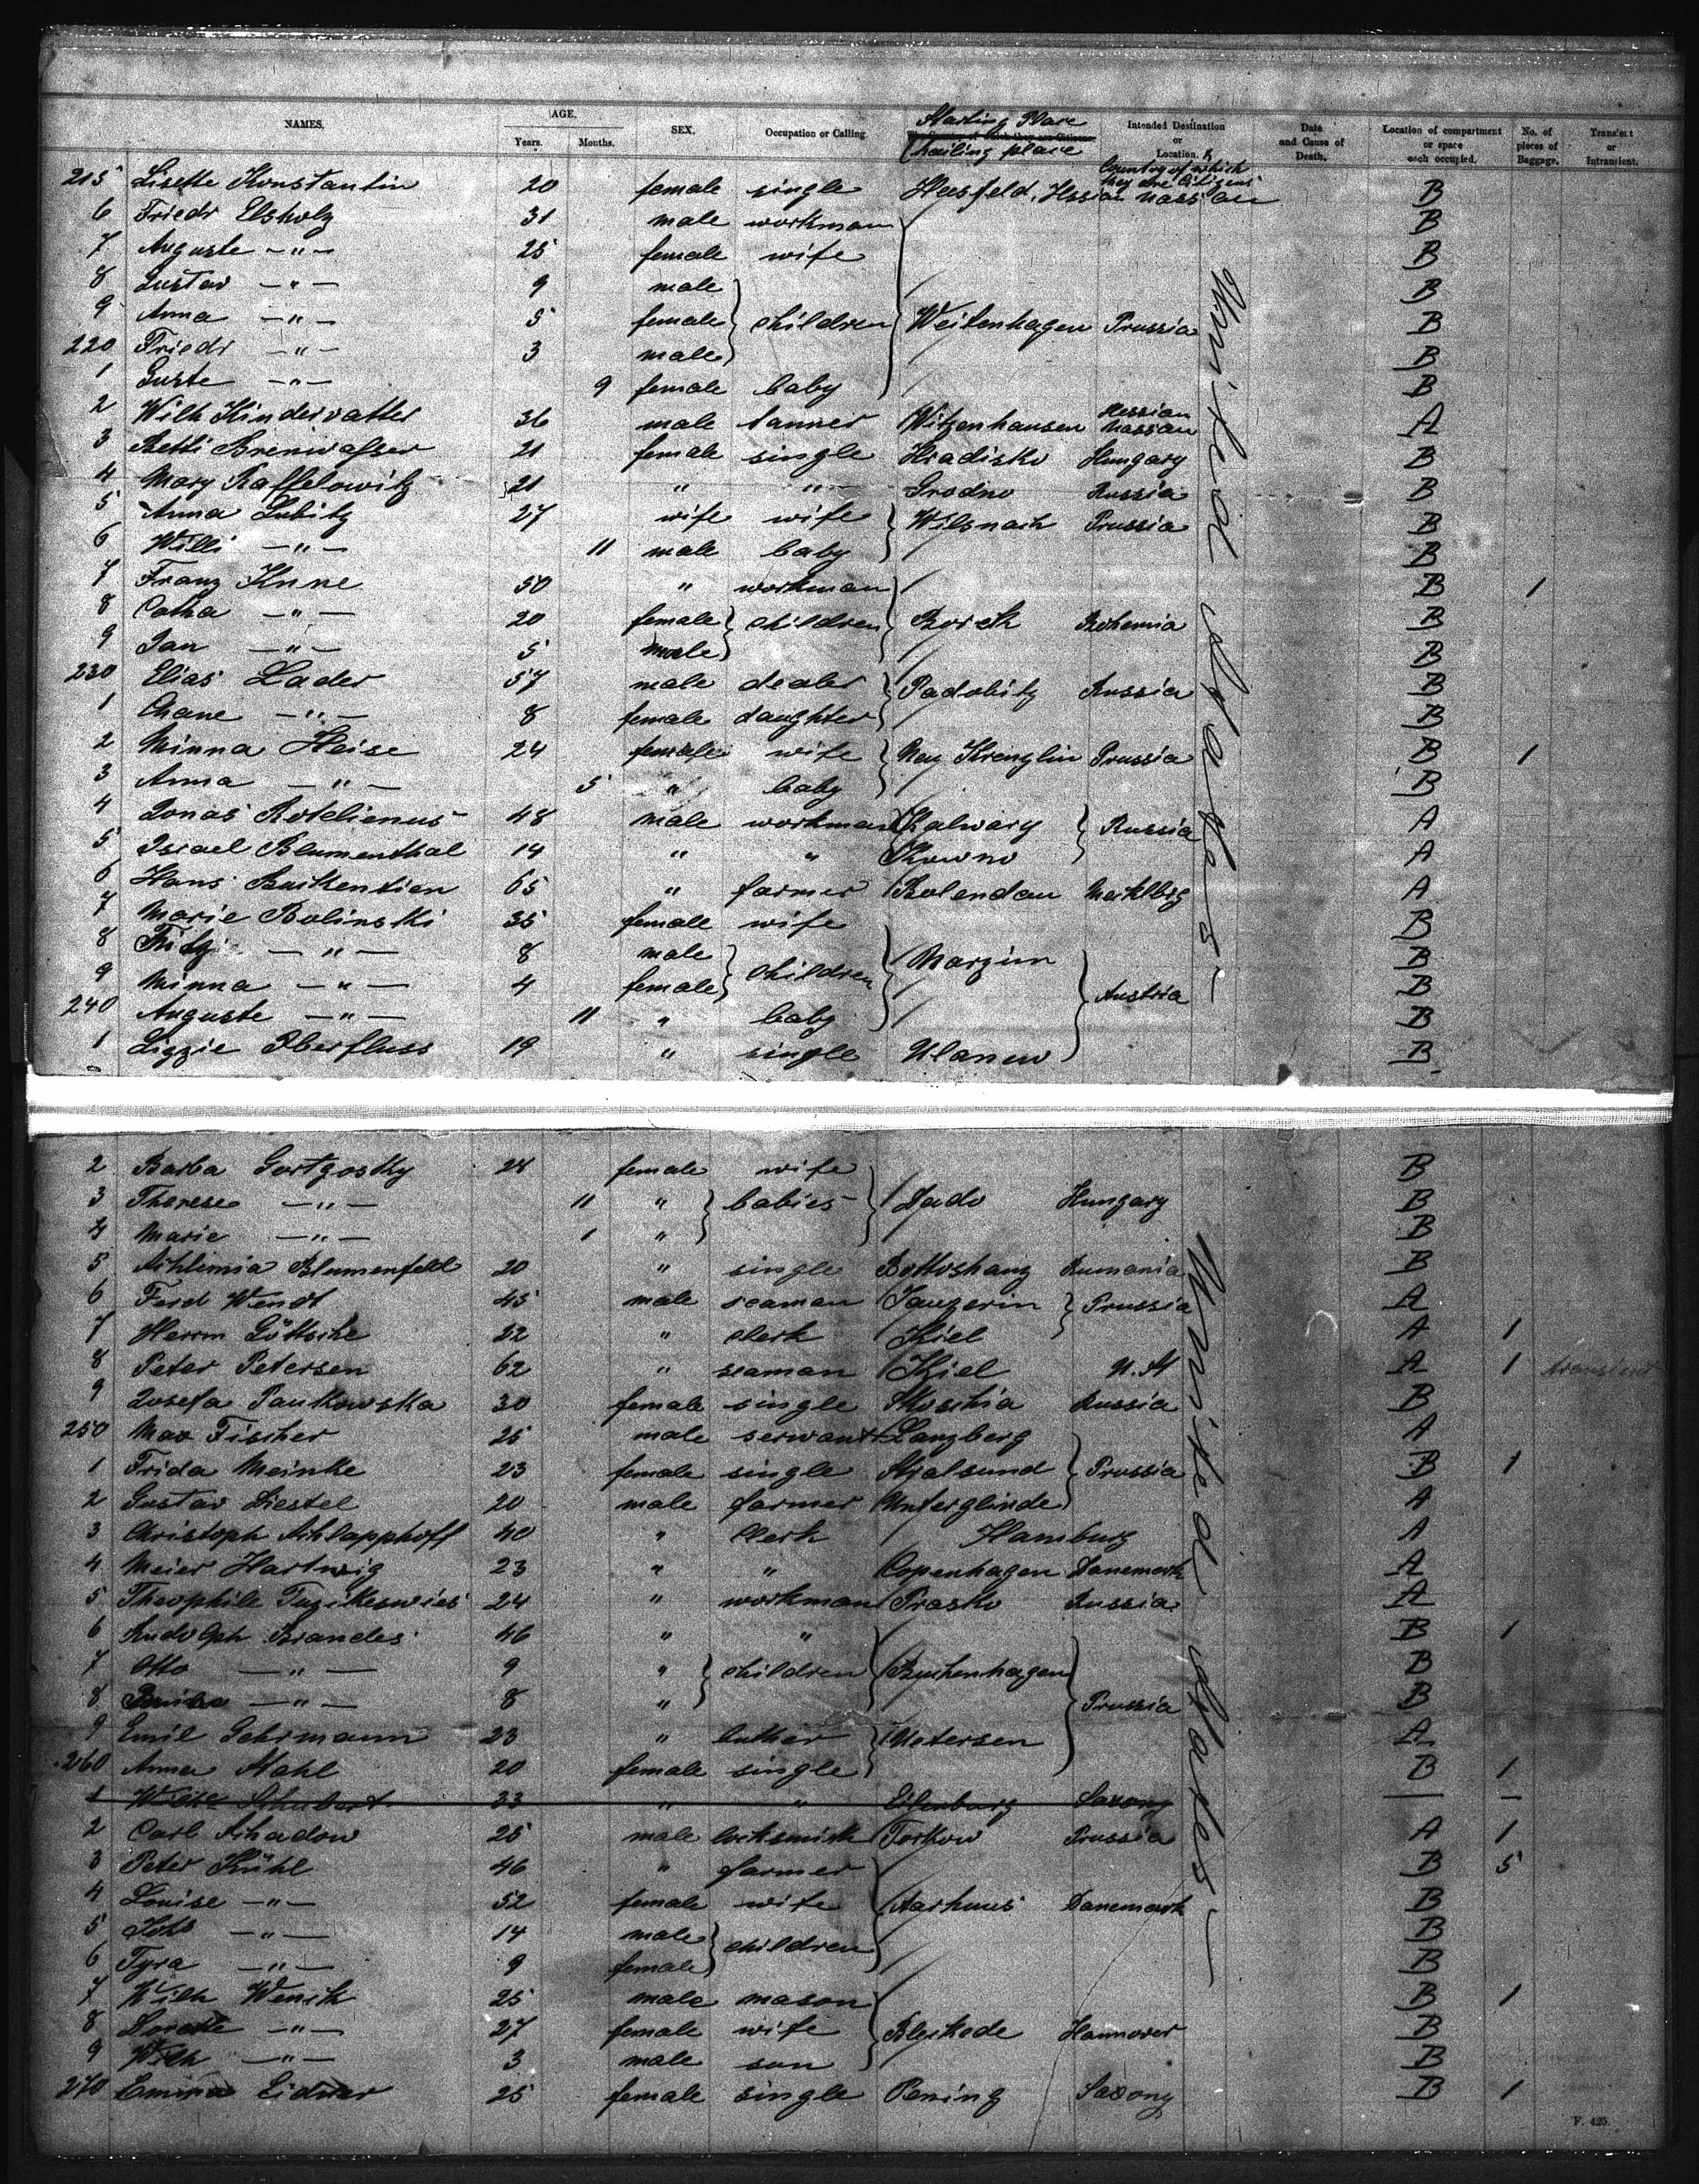 NAMES. AGE. Years. Months. SEX. Occupation or Calling. Starting Place (hailing place Intended Destination or Location. Country of which they are Citizens Date and Cause of Death. Location of compartment or space each occupied. No. of pieces of Baggage. Transient or Intransient.
215 Lisette Konstantin 20 female single Hersfeld, Hessian Nassau B
6 Friedr Elsholz 31 male workman B
7 Auguste —"— 25 female wife B
8 Gustav —"— 9 male B
9 Anna —"— 5 female children Weitenhagen Prussia B
220 Friedr —"— 3 male B
1 Guste —"— 9 female baby B
2 Wilh Kindervatter 36 male tanner Witzenhausen Hessian Nassau A
3 Betti Brenwasser 21 female single Hradisko Hungary B
4 Mary Raffelowitz 21 " " Grodno Russia B
5 Anna Lubitz 27 wife wife Wilsnack Prussia B
6 Willi —"— 11 male baby B
7 Franz Knne 50 " workman B 1
8 Catha —"— 20 female children Borek Bohemia B
9 Jan —"— 5 male B
230 Elias Lader 57 male dealer Padobitz Russia B
1 Chane —"— 8 female daughter B
2 Minna Heise 24 female wife Neu Krenzlin Prussia B 1
3 Anna —"— 5 " baby B
4 Jonas Rotelienus 48 male workman Kalwary Russia A
5 Israel Blumenthal 14 " " Kowno A
6 Hans Burkentien 65 " farmer Bolendau Mecklbg A
7 Marie Bolinski 35 female wife B
8 Fritz —"— 8 male children Marzim B
9 Minna —"— 4 female Austria B
240 Auguste —"— 11 " baby B
1 Lizzie Oberfluss 19 " single Ulanow B
United States
2 Barba Gortzosky 24 female wife B
3 Therese —"— 11 " babies Dado Hungary B
4 Marie —"— 1 " B
5 Schlimia Blumenfeld 20 " single Bottoshang Rumania B
6 Ferd Wendt 45 male seaman Jangerin Prussia A
7 Herrm Göttsche 22 " clerk Kiel A 1
8 Peter Petersen 62 " seaman Kiel U.St A 1 transient
9 Josefa Paukowska 30 female single Skoschia Russia B
250 Max Fischer 25 male servant Lanzberg A
1 Frida Meinke 23 female single Stralsund Prussia B 1
2 Gustav Liestel 20 male farmer Unterglinde A
3 Christoph Schlapphoff 40 " clerk Hamburg A
4 Meier Hartwig 23 " " Copenhagen Danemark A
5 Theophile Tuzikeswies 24 " workman Prasko Russia A
6 Rudolph Brandes 46 " " B 1
7 Otto —"— 9 " children Buchenhagen B
8 —"— 8 " Prussia B
9 Emil Gehrmann 23 " Uetersen A
260 Anna Stahl 20 female single B 1
1 Schubert 33 " " Eilenburg Saxony — —
2 Carl Schadow 25 male locksmith Torkow Prussia A 1
3 Peter Kühl 46 " farmer B 5
4 Louise —"— 52 female wife Aarhuus Danemark B
5 Joh —"— 14 male children B
6 Tyra —"— 9 female B
7 Wilh Wenck 25 male mason B 1
8 Dorette —"— 27 female wife Bleckede Hannover B
9 Wilh —"— 3 male son B
270 Emma Lidner 25 female single Pening Saxony B 1
United States
F. 425.